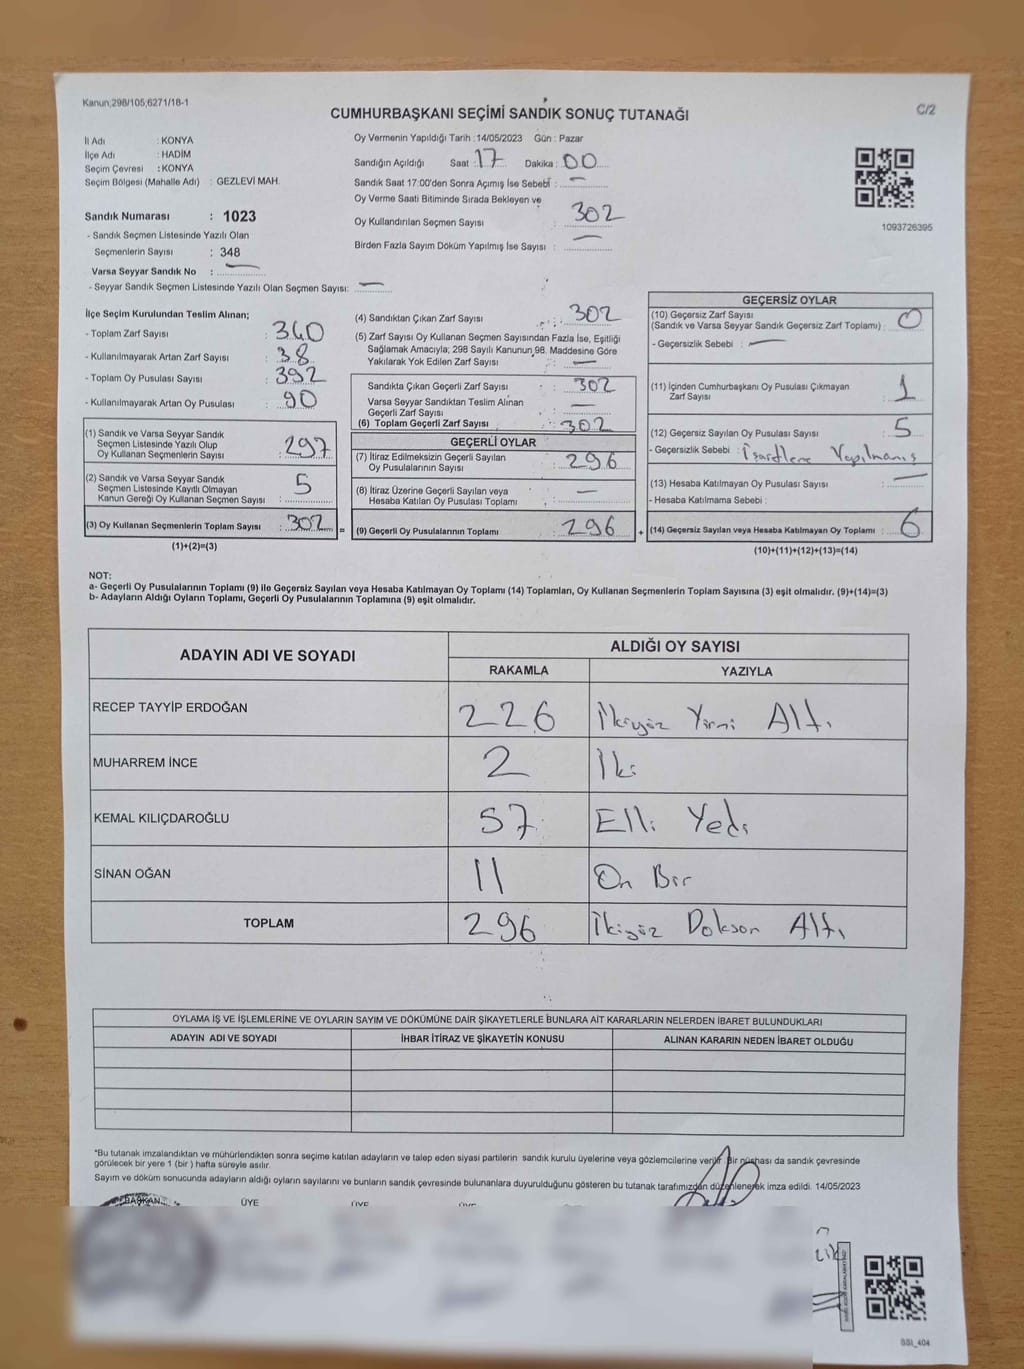 Kanun;298/105;6271/18-1
C/2
CUMHURBAŞKANI SEÇİMİ SANDIK SONUÇ TUTANAĞI
İl Adı : KONYA
İlçe Adı : HADİM
Seçim Çevresi : KONYA
Seçim Bölgesi (Mahalle Adı) : GEZLEVİ MAH.
Sandık Numarası : 1023
- Sandık Seçmen Listesinde Yazılı Olan
Seçmenlerin Sayısı : 348
Varsa Seyyar Sandık No : —
- Seyyar Sandık Seçmen Listesinde Yazılı Olan Seçmen Sayısı: —
Oy Vermenin Yapıldığı Tarih : 14/05/2023 Gün : Pazar
Sandığın Açıldığı Saat : 17 Dakika : 00
Sandık Saat 17:00'den Sonra Açımış İse Sebebi : —
Oy Verme Saati Bitiminde Sırada Bekleyen ve
Oy Kullandırılan Seçmen Sayısı 302
Birden Fazla Sayım Döküm Yapılmış İse Sayısı : —
1093726395
İlçe Seçim Kurulundan Teslim Alınan;
- Toplam Zarf Sayısı : 340
- Kullanılmayarak Artan Zarf Sayısı : 38
- Toplam Oy Pusulası Sayısı : 392
- Kullanılmayarak Artan Oy Pusulası : 90
(1) Sandık ve Varsa Seyyar Sandık
Seçmen Listesinde Yazılı Olup
Oy Kullanan Seçmenlerin Sayısı : 297
(2) Sandık ve Varsa Seyyar Sandık
Seçmen Listesinde Kayıtlı Olmayan
Kanun Gereği Oy Kullanan Seçmen Sayısı : 5
(3) Oy Kullanan Seçmenlerin Toplam Sayısı : 302 =
(1)+(2)=(3)
(4) Sandıktan Çıkan Zarf Sayısı : 302
(5) Zarf Sayısı Oy Kullanan Seçmen Sayısından Fazla İse, Eşitliği
Sağlamak Amacıyla; 298 Sayılı Kanunun 98. Maddesine Göre
Yakılarak Yok Edilen Zarf Sayısı : —
Sandıkta Çıkan Geçerli Zarf Sayısı : 302
Varsa Seyyar Sandıktan Teslim Alınan
Geçerli Zarf Sayısı : —
(6) Toplam Geçerli Zarf Sayısı : 302
GEÇERLİ OYLAR
(7) İtiraz Edilmeksizin Geçerli Sayılan
Oy Pusulalarının Sayısı : 296
(8) İtiraz Üzerine Geçerli Sayılan veya
Hesaba Katılan Oy Pusulası Toplamı : —
(9) Geçerli Oy Pusulalarının Toplamı : 296 +
GEÇERSİZ OYLAR
(10) Geçersiz Zarf Sayısı
(Sandık ve Varsa Seyyar Sandık Geçersiz Zarf Toplamı) : 0
- Geçersizlik Sebebi : —
(11) İçinden Cumhurbaşkanı Oy Pusulası Çıkmayan
Zarf Sayısı : 1
(12) Geçersiz Sayılan Oy Pusulası Sayısı : 5
- Geçersizlik Sebebi : İşaretleme Yapılmamış
(13) Hesaba Katılmayan Oy Pusulası Sayısı : —
- Hesaba Katılmama Sebebi :
(14) Geçersiz Sayılan veya Hesaba Katılmayan Oy Toplamı : 6
(10)+(11)+(12)+(13)=(14)
NOT:
a- Geçerli Oy Pusulalarının Toplamı (9) ile Geçersiz Sayılan veya Hesaba Katılmayan Oy Toplamı (14) Toplamları, Oy Kullanan Seçmenlerin Toplam Sayısına (3) eşit olmalıdır. (9)+(14)=(3)
b- Adayların Aldığı Oyların Toplamı, Geçerli Oy Pusulalarının Toplamına (9) eşit olmalıdır.
ADAYIN ADI VE SOYADI ALDIĞI OY SAYISI
RAKAMLA YAZIYLA
RECEP TAYYİP ERDOĞAN 226 İkiyüz Yirmi Altı
MUHARREM İNCE 2 İki
KEMAL KILIÇDAROĞLU 57 Elli Yedi
SİNAN OĞAN 11 On Bir
TOPLAM 296 İkiyüz Doksan Altı
OYLAMA İŞ VE İŞLEMLERİNE VE OYLARIN SAYIM VE DÖKÜMÜNE DAİR ŞİKAYETLERLE BUNLARA AİT KARARLARIN NELERDEN İBARET BULUNDUKLARI
ADAYIN ADI VE SOYADI İHBAR İTİRAZ VE ŞİKAYETİN KONUSU ALINAN KARARIN NEDEN İBARET OLDUĞU
*Bu tutanak imzalandıktan ve mühürlendikten sonra seçime katılan adayların ve talep eden siyasi partilerin sandık kurulu üyelerine veya gözlemcilerine verilir. Bir nüshası da sandık çevresinde
görülecek bir yere 1 (bir) hafta süreyle asılır.
Sayım ve döküm sonucunda adayların aldığı oyların sayılarını ve bunların sandık çevresinde bulunanlara duyurulduğunu gösteren bu tutanak tarafımızdan düzenlenerek imza edildi. 14/05/2023
BAŞKAN ÜYE ÜYE